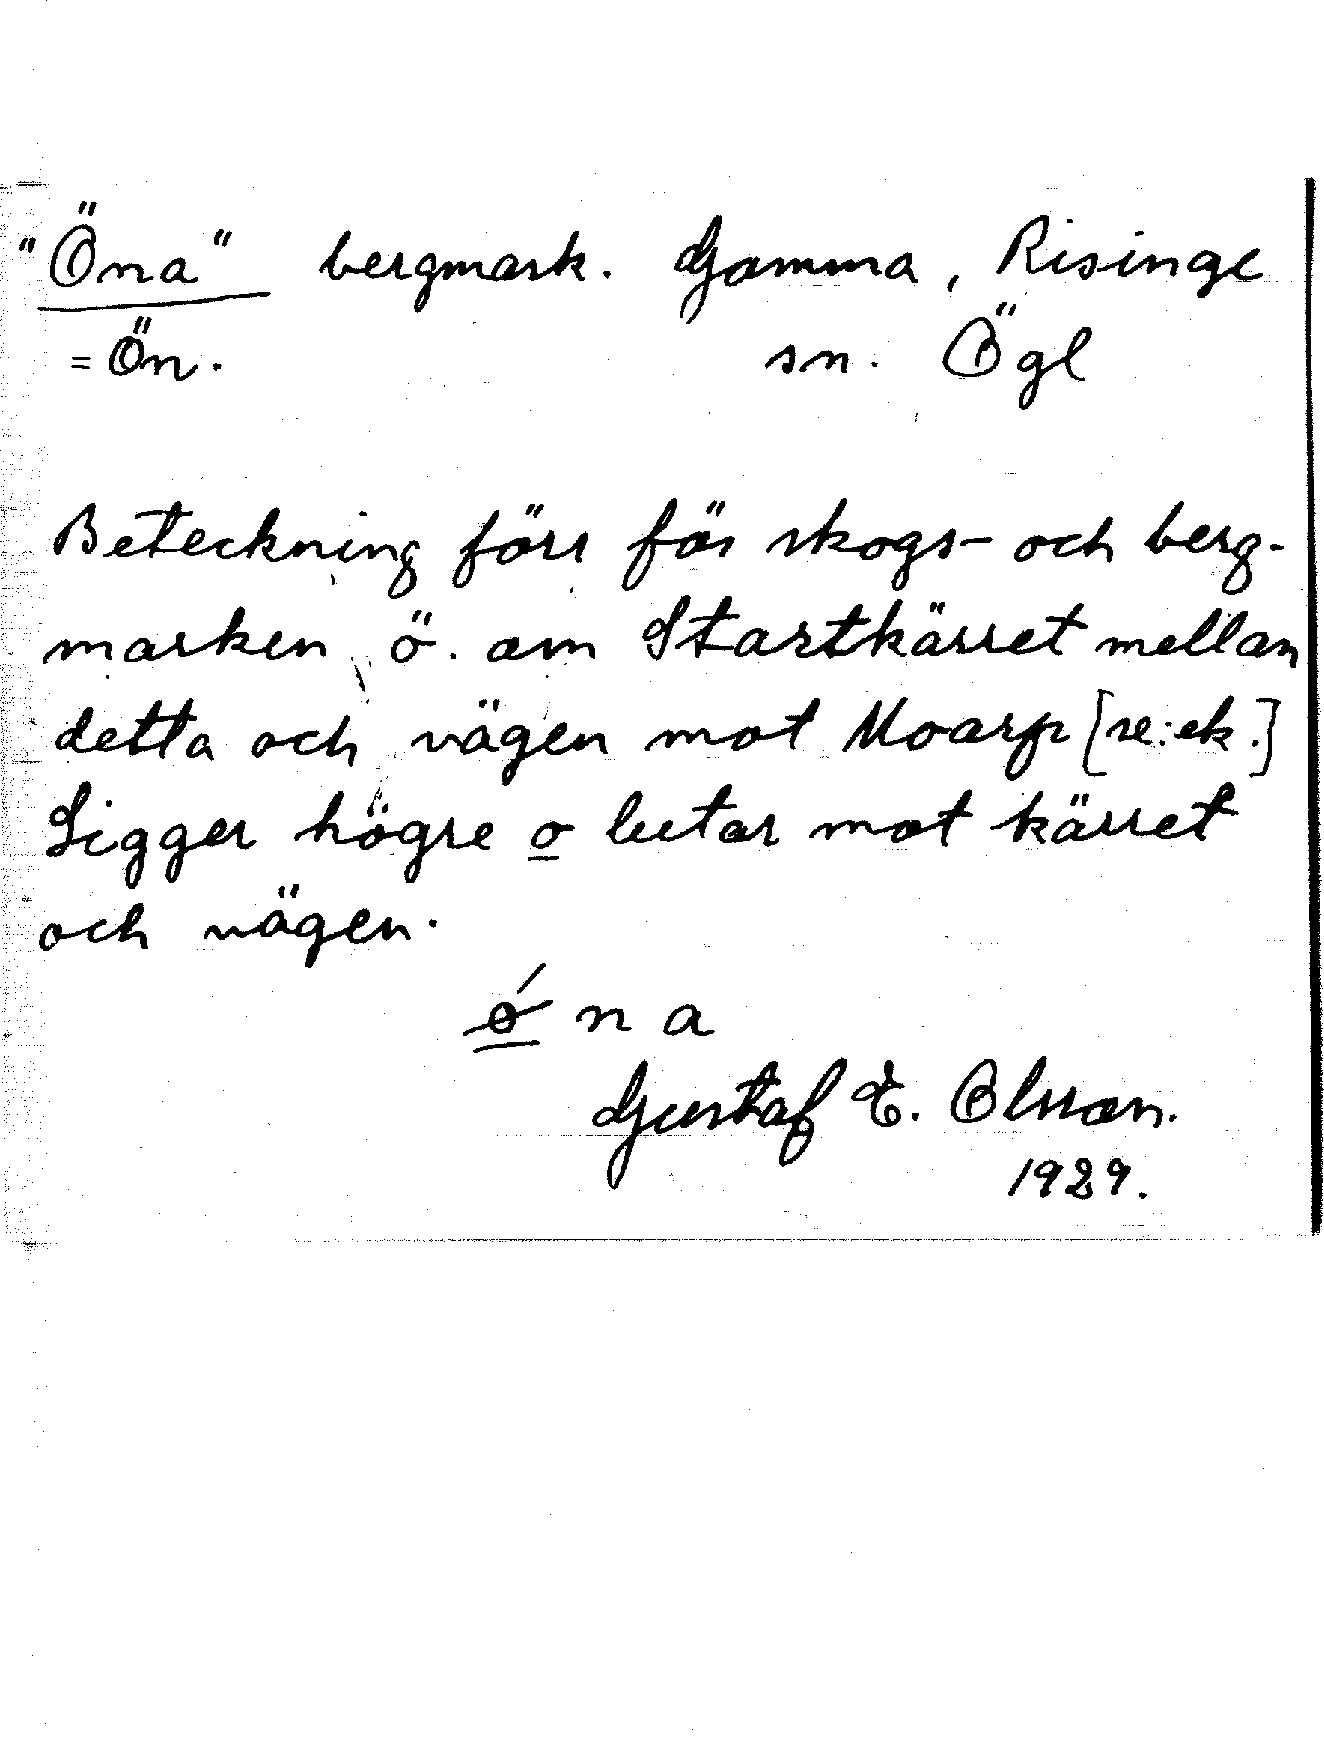 "Öna" bergmark. Gomma, Risinge
= Ön. sn. Ögl
Beteckning förr för skogs- och berg-
marken ö. om Startkärret mellan
detta och vägen mot Moarp [se: ek.]
Ligger högre o lutar mot kärret
och vägen.
na
Gustaf E. Olsson.
1929.